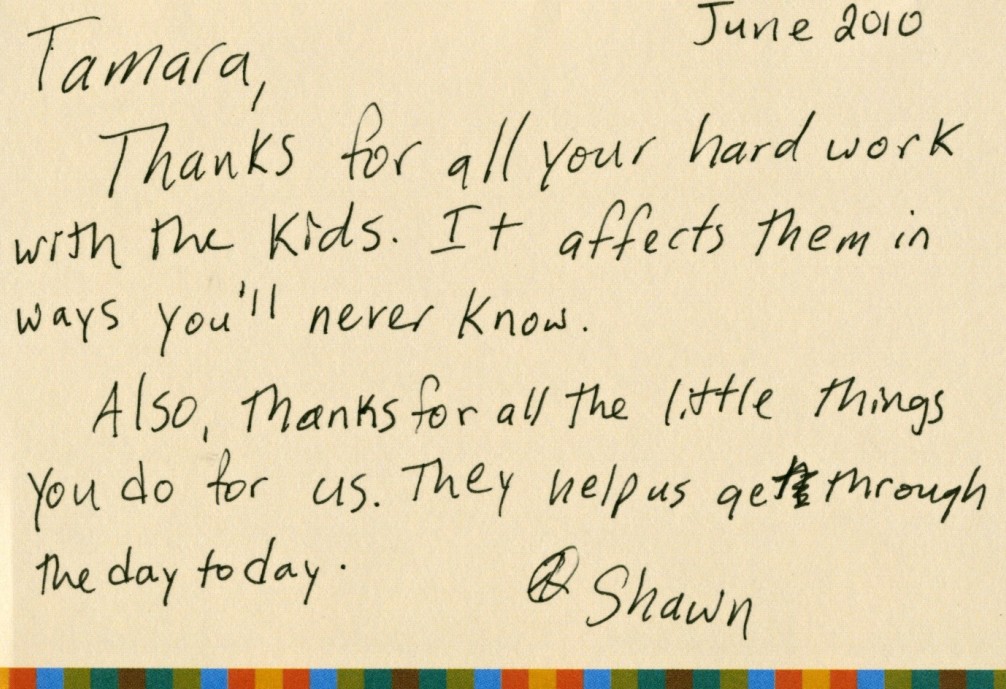 June 2010
Tamara,
Thanks for all your hard work
with the kids. It affects them in
ways you'll never know.
Also, thanks for all the little things
you do for us. They help us get through
the day to day.
Shawn